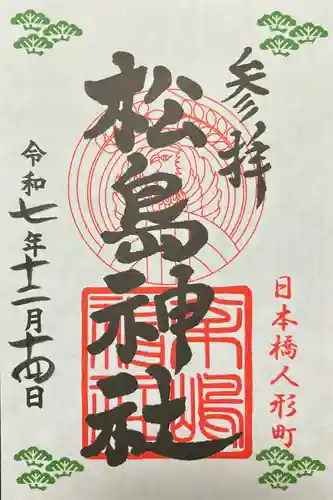 参拝
松島神社
日本橋人形町
令和七年十二月十四日